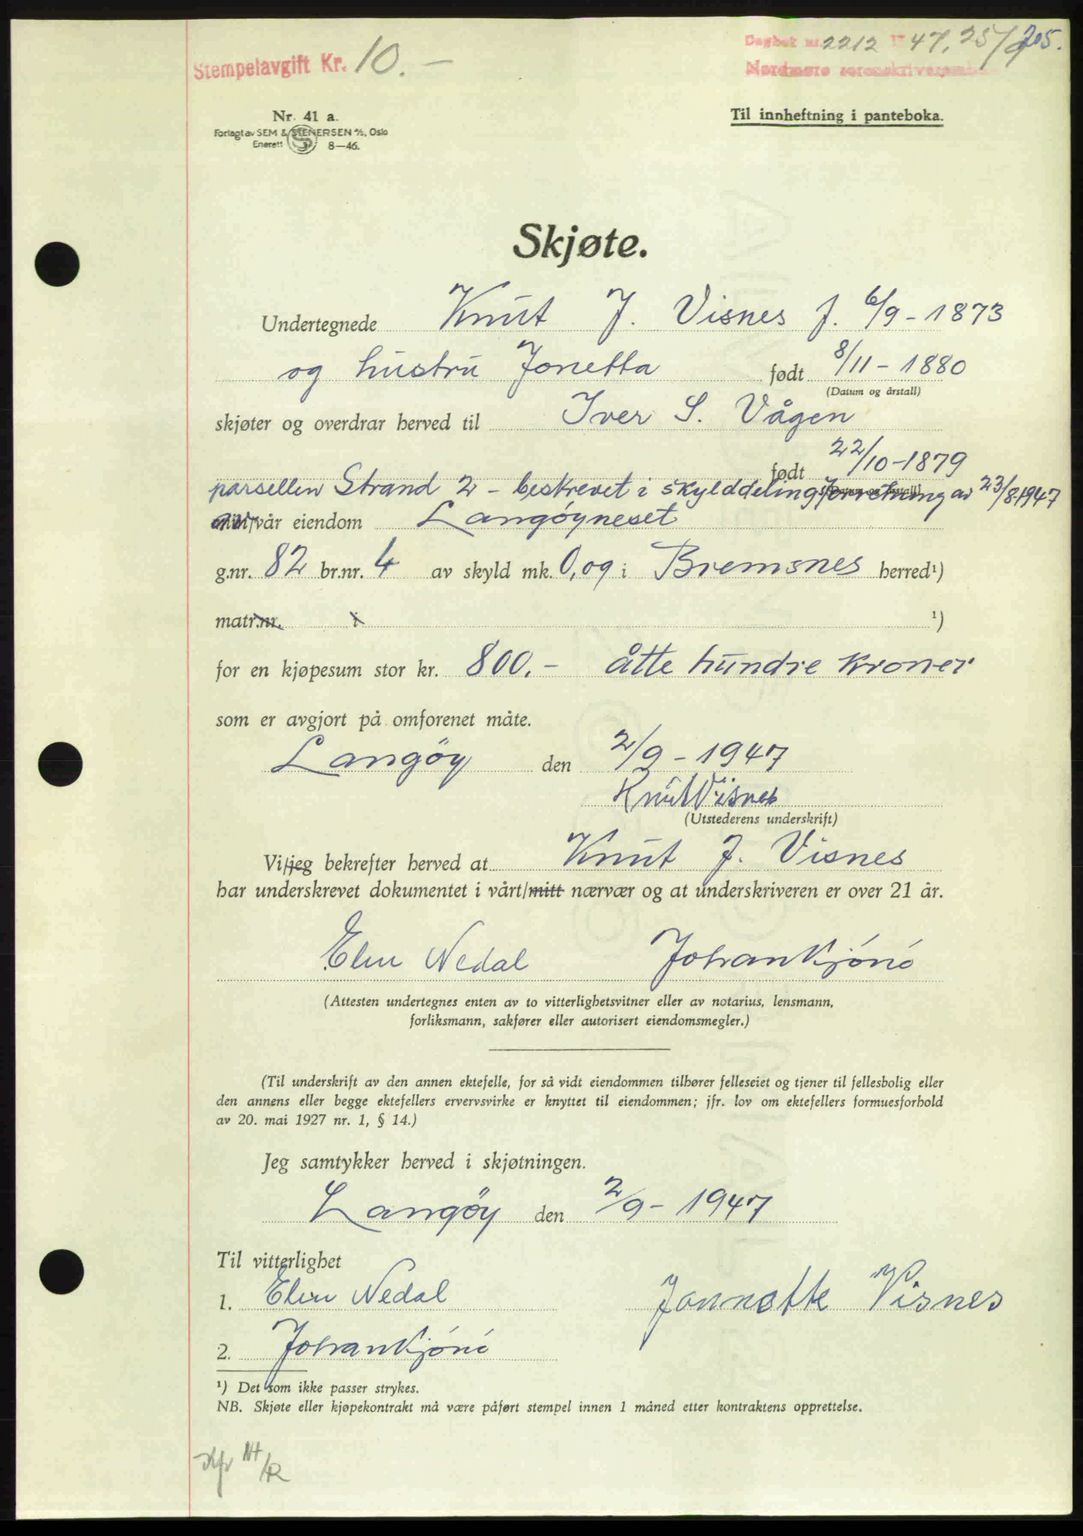 Stempelavgift Kr. 10.–
Dagbok nr. 2212 1947, 25/9 205.
Nordmøre sorenskriverembete
Nr. 41 a.
Forlagt av SEM & STENERSEN A/S, Oslo
Enerett 8—46.
Til innheftning i panteboka.
Skjøte.
Undertegnede Knut J. Visnes f. 6/9 - 1873
og hustru Jonetta født 8/11 - 1880
(Datum og årstall)
skjøter og overdrar herved til Iver S. Vågen
født 22/10-1879
parsellen Strand 2 - beskrevet i skylddelingforretning av 23/8.1947
av vår eiendom Langöyneset
g.nr. 82 br.nr. 4 av skyld mk. 0,09 i Bremsnes herred¹)
matr.nr. i ¹)
for en kjøpesum stor kr. 800.– åtte hundre kroner
som er avgjort på omforenet måte.
Langöy den 2/9 - 1947
Knut Visnes
(Utstederens underskrift)
Vi/jeg bekrefter herved at Knut J. Visnes
har underskrevet dokumentet i vårt/mitt nærvær og at underskriveren er over 21 år.
Elin Nedal Johan Kjönö
(Attesten undertegnes enten av to vitterlighetsvitner eller av notarius, lensmann,
forliksmann, sakfører eller autorisert eiendomsmegler.)
(Til underskrift av den annen ektefelle, for så vidt eiendommen tilhører felleseiet og tjener til fellesbolig eller
den annens eller begge ektefellers ervervsvirke er knyttet til eiendommen; jfr. lov om ektefellers formuesforhold
av 20. mai 1927 nr. 1, § 14.)
Jeg samtykker herved i skjøtningen.
Langöy den 2/9 - 1947
Til vitterlighet
1. Elin Nedal Jonnette Visnes
2. Johan Kjönö
¹) Det som ikke passer strykes.
NB. Skjøte eller kjøpekontrakt må være påført stempel innen 1 måned etter kontraktens opprettelse.